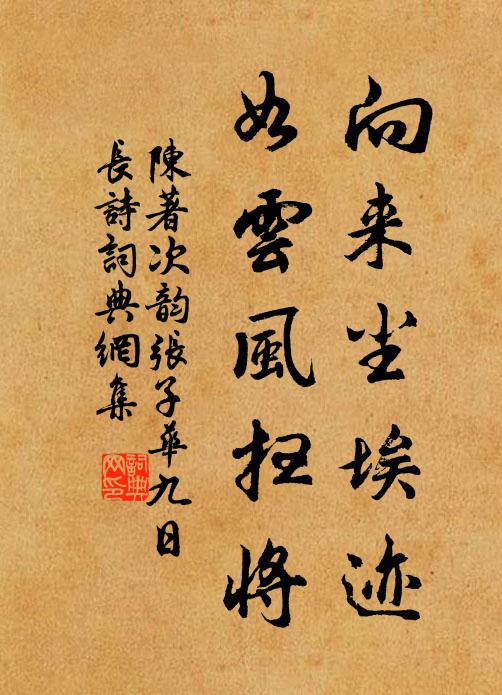 向来尘埃迹
如雲風扫將
陳著次韵張子華九日
長詩詞典網集
詞典网印